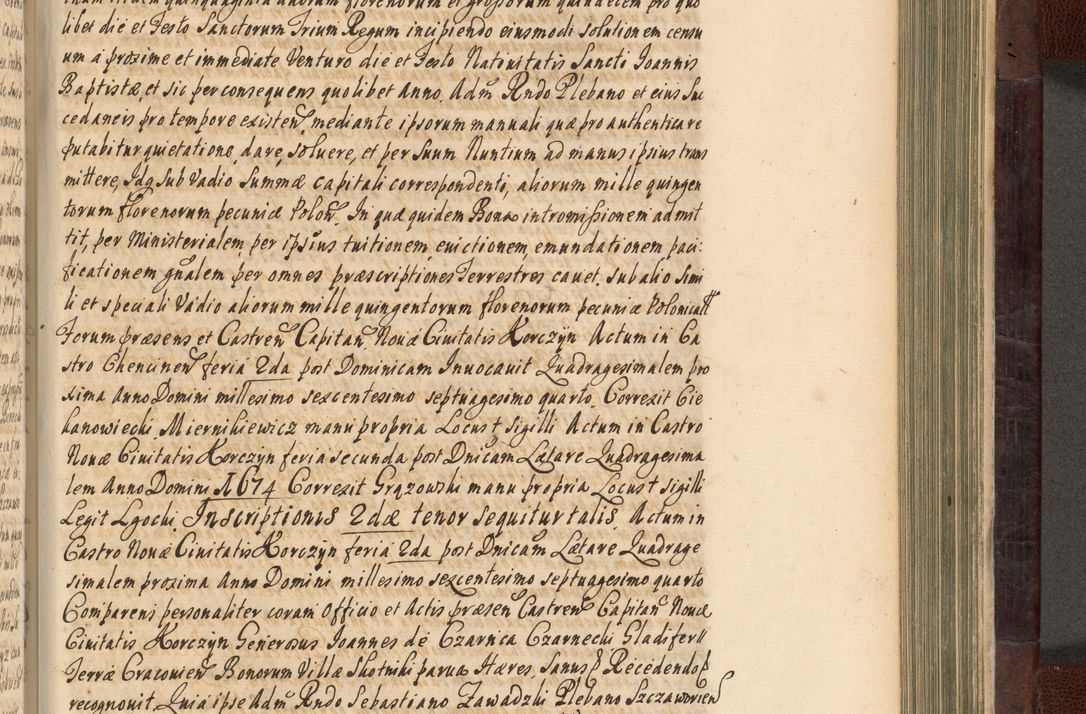 libet die et Festo Sanctorum Trium Regum incipiendo eiusmodi solutionem censu
um à proxime et immediate Venturo die et Festo Natiuitatis Sancti Ioannis
Baptistæ, et sic per consequens quolibet Anno. Adm Rndo Plebano et eius Suc
cedaneis pro tempore existen, mediante ipsorum manuali quæ pro authentica re
putabitur quietatione, dare, soluere, et per Suum Nuntium ad manus ipsius trans
mittere, Idq Sub Vadio Summæ capitali correspondenti, aliorum mille quingen
torum florenorum pecuniæ Polon. In quæ quidem Bona intromissionem admit
tit, per Ministerialem, per ipsius tuitionem, euictionem, emundationem, paci:
ficationem gnalem per omnes præscriptiones Terrestres cauet. sub alio Simi
li et speciali Vadio aliorum mille quingentorum florenorum pecuniæ Polonicall
Forum præsens et Castren Capitan Nouæ Ciuitatis Korczyn Actum in Ca
stro Chencinen feria 2da post Dominicam Inuocauit Quadragesimalem pro
xima Anno Domini millesimo sexcentesimo septuagesimo quarto. Correxit Cie
kanowiecki. Miernikiewicz manu propria Locus + sigilli Actum in Castro
Nouæ Ciuitatis Korczyn feria secunda post Dnicam Lætare Quadragesima
lem Anno Domini 1674 Correxit Grązowski manu propria Locus + sigilli
Legit Lgocki. Inscriptionis 2dæ tenor sequitur talis. Actum in
Castro Nouæ Ciuitatis Korczyn feria 2da post Dnicam Lætare Quadrage
simalem proxima Anno Domini millesimo sexcentesimo septuagesimo quarto
Comparens personaliter coram Officio et Actis præsen Castren Capitan Nouæ
Ciuitatis Korczyn Generosus Ioannes de Czarnca Czarnecki Gladifer
Terræ Cracouien Bonorum Villæ Skotniki paruæ Hæres. Sanus p Recedendo p
recognouit. Quia ipse Adm Rndo Sebastiano Zawadzki Plebano Szczaworien